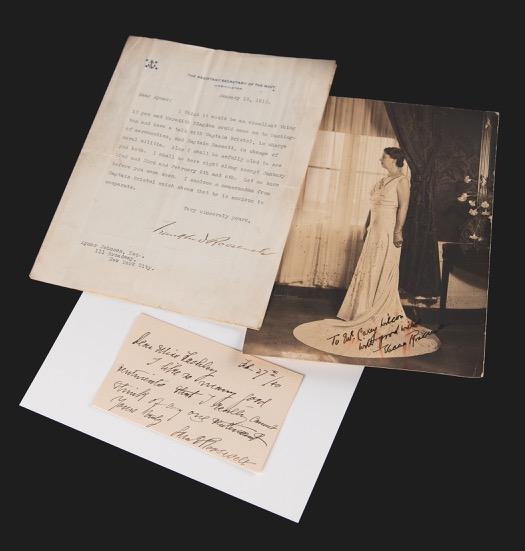 THE ASSISTANT SECRETARY OF THE NAVY
WASHINGTON
January 1915.
Dear Aymar:
I think it would be an excellent thing
if you and Meredith would come on to Washing-
ton and have a talk with Captain Bristol, in charge
of aeronautics, and Captain Bassett, in charge of
naval militia. Also I shall be awfully glad to see
you both. I shall be here right along except January
22nd and 23rd and February 5th and 6th. Let me know
before you come down. I enclose a memorandum from
Captain Bristol which shows that he is anxious to
cooperate.
Very sincerely yours,
Franklin D Roosevelt
Aymar Johnson, Esq.,
111 Broadway,
New York City.
To Mr. Carey Wilson
with good wishes
Eleanor Roosevelt
Feb. 27th
Dear Miss
I like so many good
that I really cannot
think of any one
Yours truly
Roosevelt